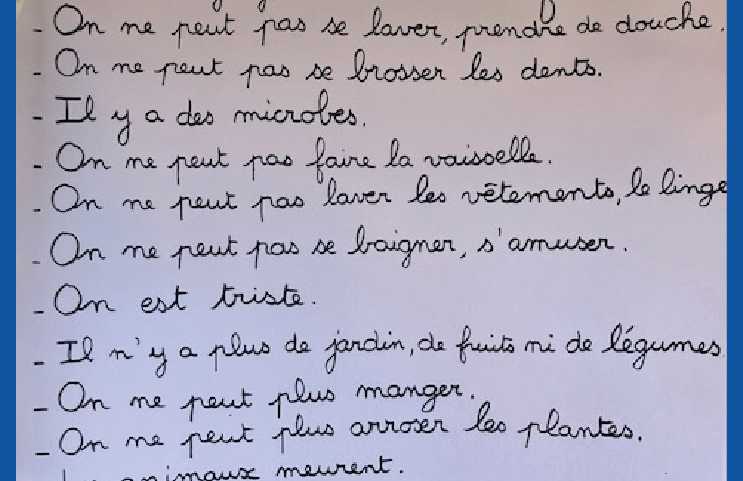 - On ne peut pas se laver, prendre de douche.
- On ne peut pas se brosser les dents.
- Il y a des microbes.
- On ne peut pas faire la vaisselle.
- On ne peut pas laver les vêtements, le linge
- On ne peut pas se baigner, s'amuser.
- On est triste.
- Il n'y a plus de jardin, de fruits ni de légumes
- On ne peut plus manger.
- On ne peut plus arroser les plantes.
animaux meurent.